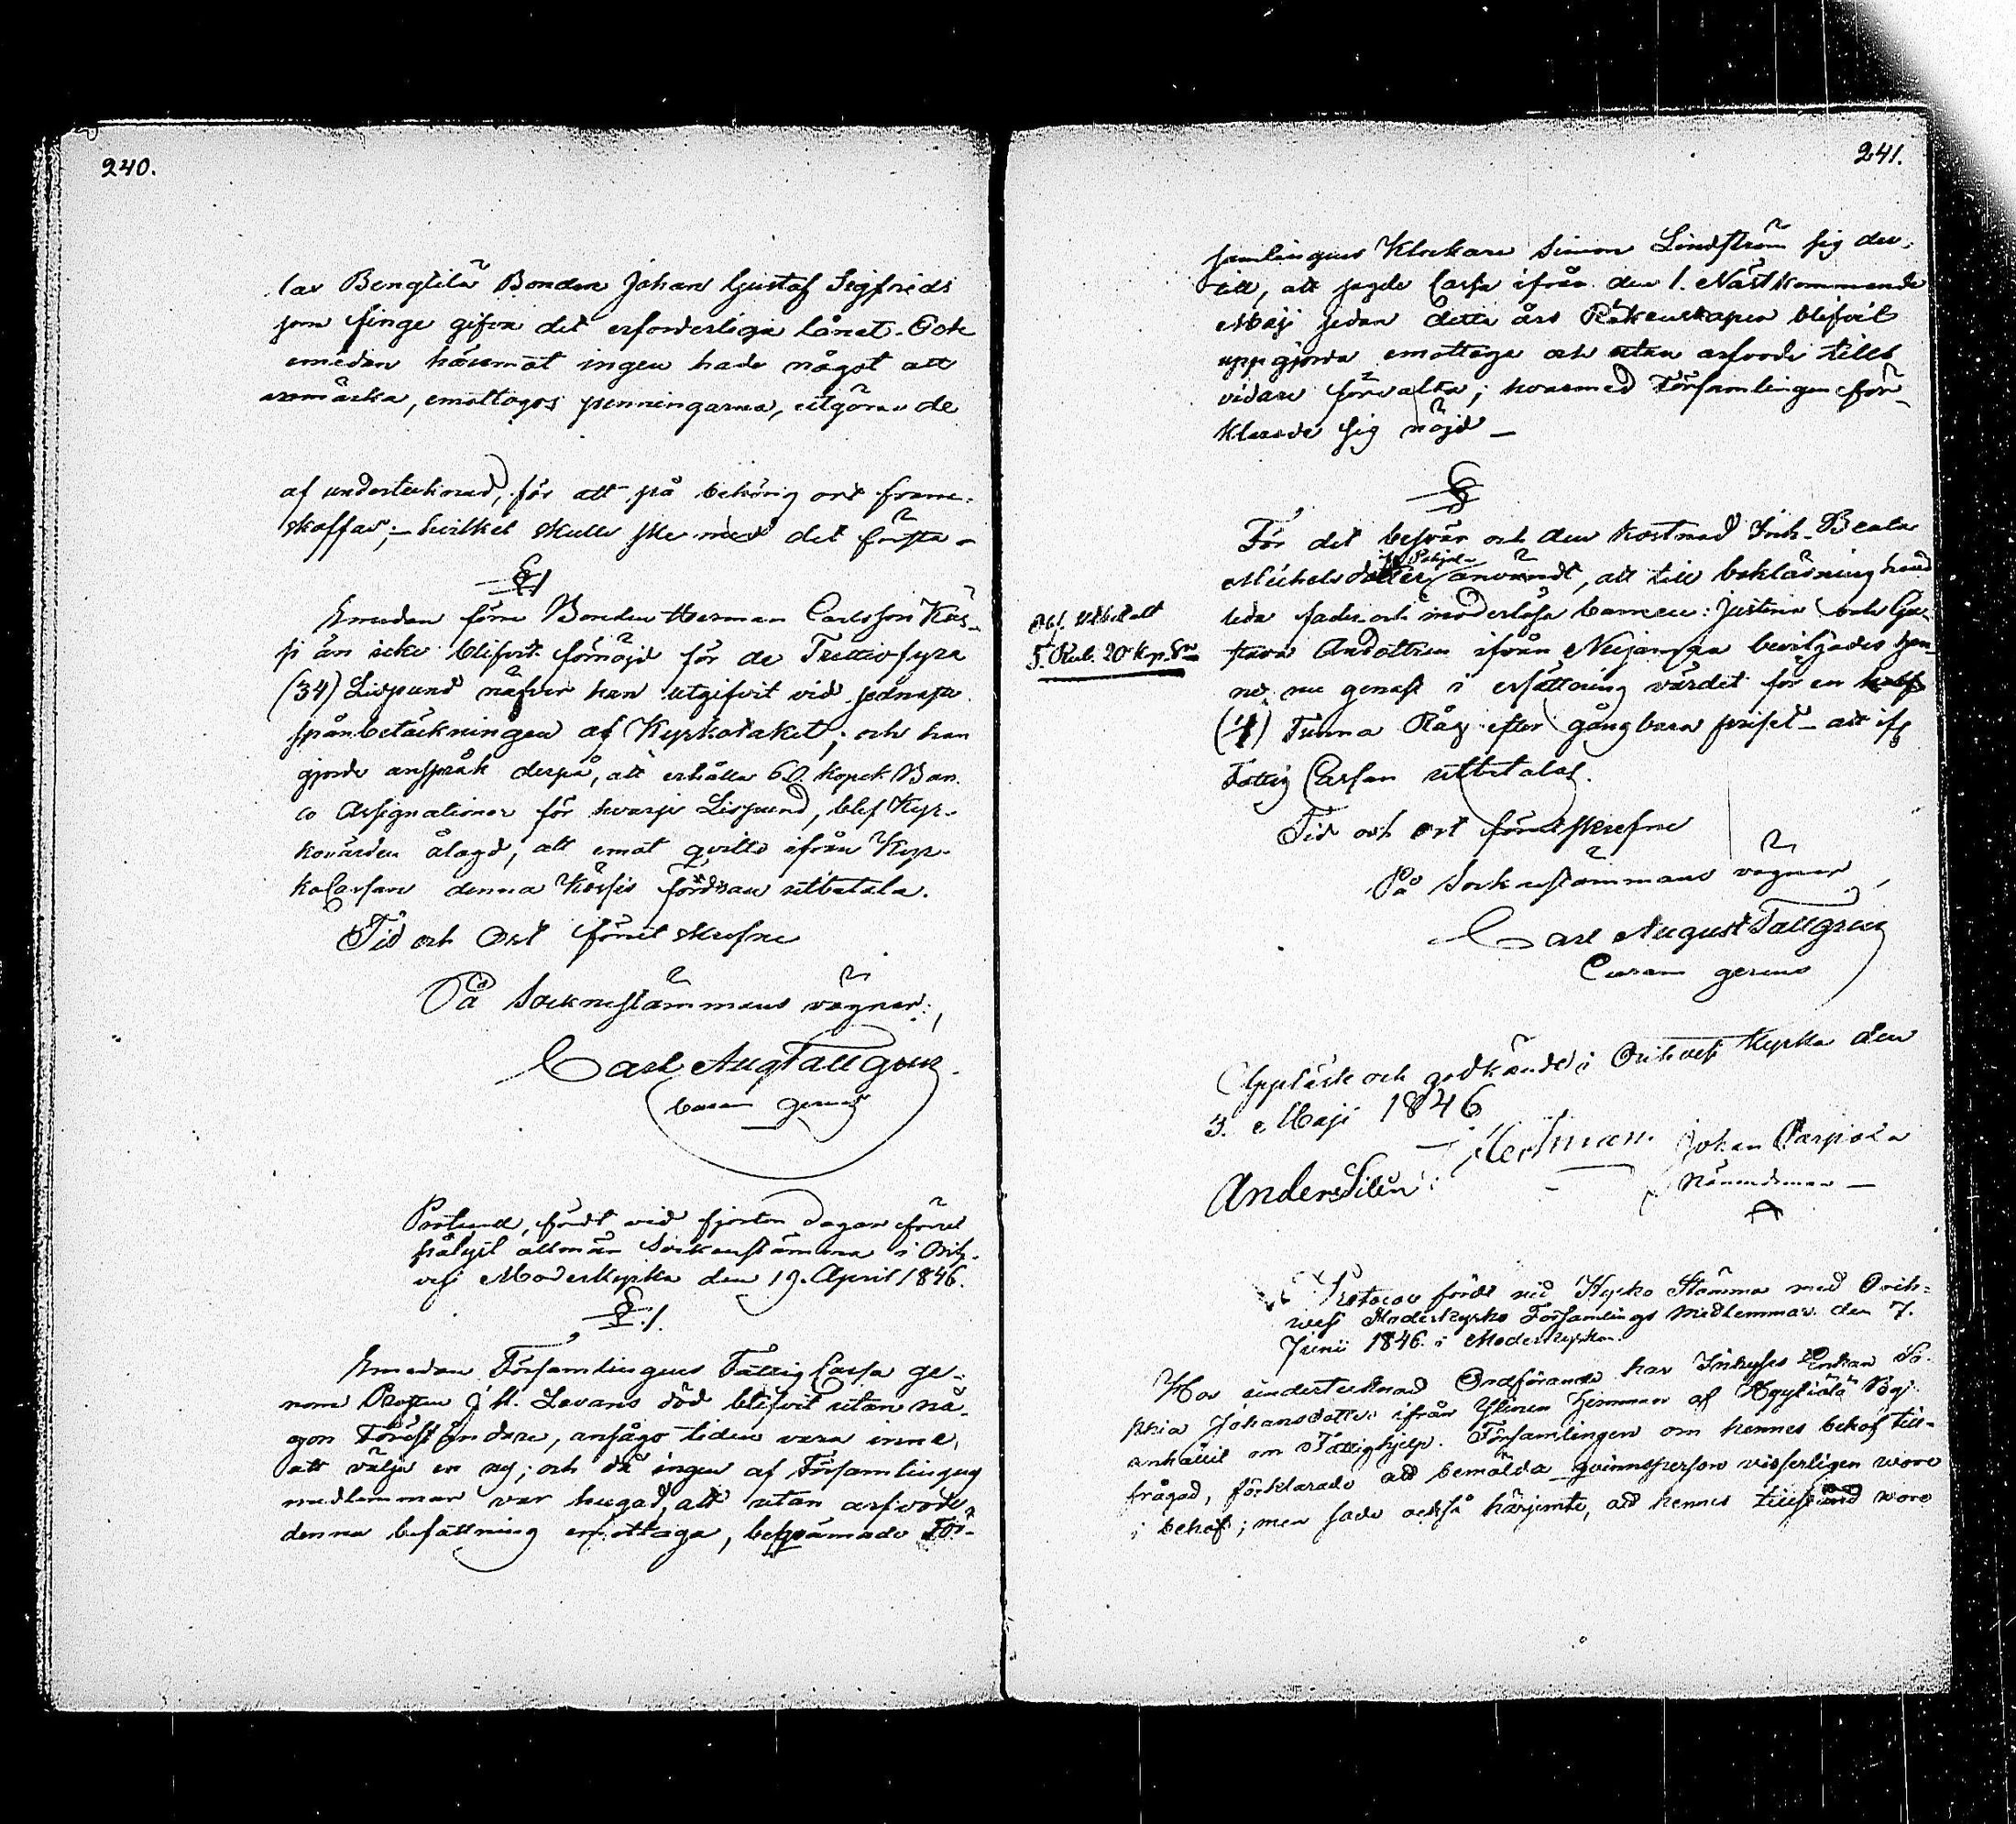 240.
lar Bengtilä Bonden Johan Gustaf Sigfrids
son finge gifva det erforderliga lånet. Och
emedan häremot ingen hade något att
anmärka, emottogos penningarna, utgöran de
af undertecknad, för att på behörig ort fram-
skaffas; hvilket skulle ske med det första.
§
Emedan förre Bonden Herman Carlsson Kös-
si än icke blifvit förnöjd för de Trettiofyra
(34) Lispund näfver han utgifvit vid sednaste
spånbetäckningen af Kyrkotaket; och han
gjorde anspråk derpå, att erhålla 60. Kopek Ban-
co Assignationer för hvarje Lispund, blef Kyr-
kovärden ålagd, att emot qvitto ifrån Kyr-
koCassan denna Kössis fordran utbetala.
Tid och Ort förut skrefne
På Socknestämmans vägnar,
Carl Aug Tallgren
curam gerens
Protocoll, fördt vid fjorton dagar förut
pålyst allmän Sockenstämma i Orih-
vesi Moderkyrka den 19. April 1846.
§.1.
Emedan Församlingens FattigCassa ge-
nom Prosten J. H. Levans död blifvit utan nå-
gon Föreståndare, ansågs tiden vara inne,
att välja en ny; och då ingen af Församlingens
medlemmar var hugad, att utan arfvode,
denna befattning emottaga, beqvämade För-
241.
samlingens Klockare Simon Lindström sig der-
till, att sagde Cassa ifrån den 1. Nästkommande
Maji sedan detta års Räkenskaper blifvit
uppgjorda emottaga och utan arfvode till
vidare förvalta; hvarmed Församlingen för-
klarade sig nöjd
§
För det besvär och den kostnad Inh. Beata
Michelsdotter användt, att till beklädning
fader och moderlösa barnen: Justina och Gu-
stava Andottren ifrån bevilgades hen-
ne nu genast i ersättning värdet för en
(1) Tunna Råg efter gångbara priset att
Fattig Cassan utbetalas.
Afl. utbetalt
5. Rub. 20 kp. Sr
Tid och ort förutskrefne
På Socknestämmans vägnar
Carl August Tallgren
Curam gerens
Uppläst och godkändt i Orihvesi Kyrka den
3. Maji 1846
Anders Silén
Johan Parpola
Nämndeman
Protocoll fördt vid Kyrko Stämma med Orih-
vesi Moderkyrko Församlings medlemmar den 7.
Junii 1846. i Moderkyrkan.
Hos undertecknad Ordförande har Inhyses Enkan So-
phia Johansdotter ifrån Ylinen hemman af
anhållit om Fattighjelp. Församlingen om hennes behof till-
frågad, förklarade att bemälda qvinnsperson visserligen wore
i behof; men sade också härjemte, att hennes tillstånd wore